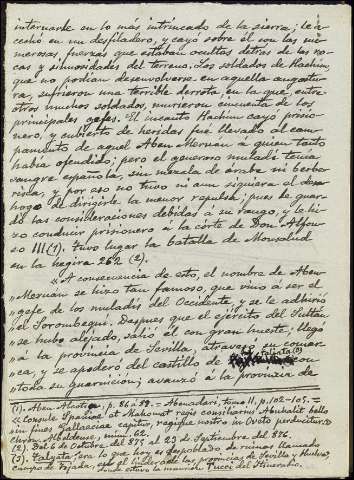 internarle en lo más intrincado de la sierra; le a-
cechó en un desfiladero, y cayó sobre él con las nu-
merosas fuerzas que estaban ocultas detras de las ro-
cas y sinuosidades del terreno. Los soldados de Hachim,
que no podian desenvolverse en aquella angostu-
ra, sufrieron una terrible derrota, en la que, entre
otros muchos soldados, murieron cincuenta de los
principales gefes. El incauto Hachim cayo prisio-
nero, y cubierto de heridas fué llevado al cam-
pamento de aquel Aben Meruan á quien tanto
habia ofendido; pero el generoso muladí tenia
sangre española, sin mezcla de árabe ni berbe-
risca, y por eso no tuvo ni aun siquiera el desa-
hogo de dirigirle la menor repulsa; pues le guar-
dó las consideraciones debidas á su rango, y le hi-
zo conducir prisionero á la corte de Don Alfon-
so III (1). Tuvo lugar la batalla de Monsalud
en la hegira 262 (2).
"A consecuencia de esto, el nombre de Aben
"Meruan se hizo tan famoso, que vino á ser el
"gefe de los muladís del Occidente, y se le adhirió
"el Sorombaqui. Despues que el ejército del Sultan
"se hubo alejado, salió él con gran hueste; llegó
"á la provincia de Sevilla, atravesó su comar-
"ca, y se apoderó del castillo de Talyata (3) con
"toda su guarnicion; avanzó á la provincia de
(1). Aben Alcotiya, p. 86 á 89. = Abenadari, tomo II, p. 102-105. =
= Consule Spaniæ et Mahomat regis consiliarius Abuhalit bello
in fines Gallaeciae capitur, regique nostro in Oveto perducitur =
chron. Albeldense, núm. 62.
(2). Del 6 de Octubre del 875 al 23 de Septiembre del 876.
(3). Talyata, era lo que hoy es despoblado de ruinas llamado
campo de Tejada, en el lindero de las provincias de Sevilla y Huelva,
donde estuvo la mansión Tucci del Itinerario.